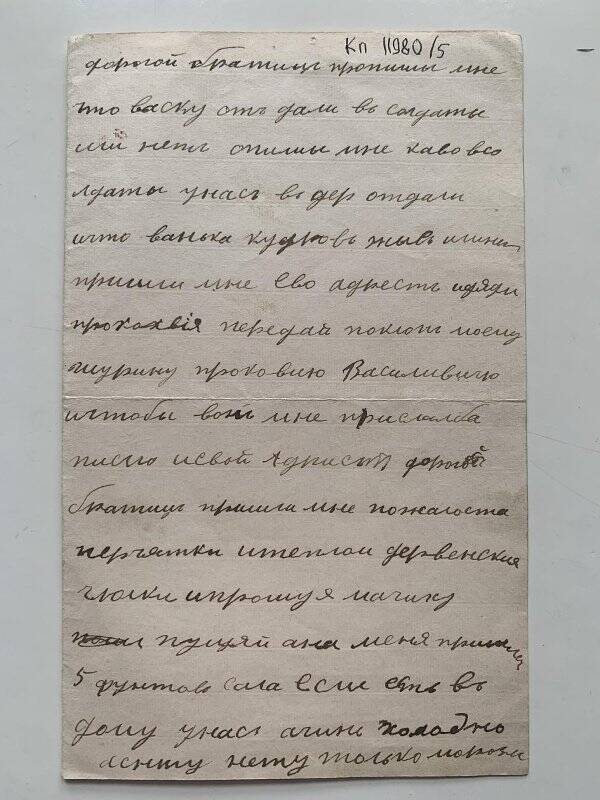 Кп 11980/5
дорогой братицъ пропишы мне
што васку отъ дали въ солдаты
или нетъ опишы мне каво всо
лдаты унасъ въ дер отдали
ишто ванька кудровъ жывъ
пришли мне Его адресть идяди
прокахвія передай поклонъ моему
шурину проковию Василивичю
иштобы вонъ мне прислалба
писмо исвой Адрисъ дорогой
братицъ пришли мне пожалоста
перчятки итеплои дервенские
чюлки ипрошу я мачику
пущяй ана меня пришлъ
5 фунтовъ сала Если есть въ
дому унасъ очинь холодно
аснегу нету только морозы